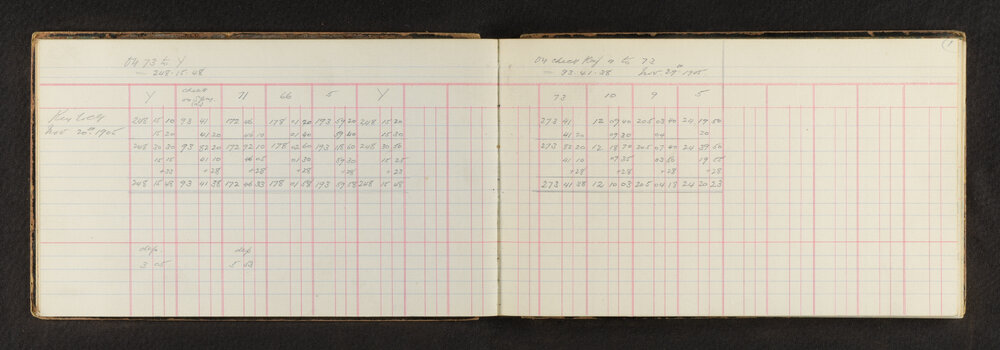 On 73 to Y
— 248.15.48
Y check on 71 66 5 Y
248 15 10 93 41 172 46 178 01 20 193 59 20 248 15 20
Nov. 20th 1905 15 20 41 20 46 10 01 40 59 40 15 30
248 30 30 93 82 20 172 92 10 178 02 60 193 18 60 248 30 50
15 15 41 10 46 05 01 30 59 30 15 25
+28 +28 +28 +28 +28
248 15 43 93 41 38 172 46 33 178 01 58 193 59 58 248 15 48
dep. dep
3 05 5 53
1
On check Ray 4 to 73
— 93.41.38 Nov. 29th 1905
73 10 9 5
273 41 12 09 40 205 03 40 24 19 50
41 20 09 30 04 20
273 82 20 12 18 70 205 07 40 24 39 50
41 10 09 35 03 50 19 55
+28 +28 +28 +28
273 41 38 12 10 03 205 04 18 24 20 23